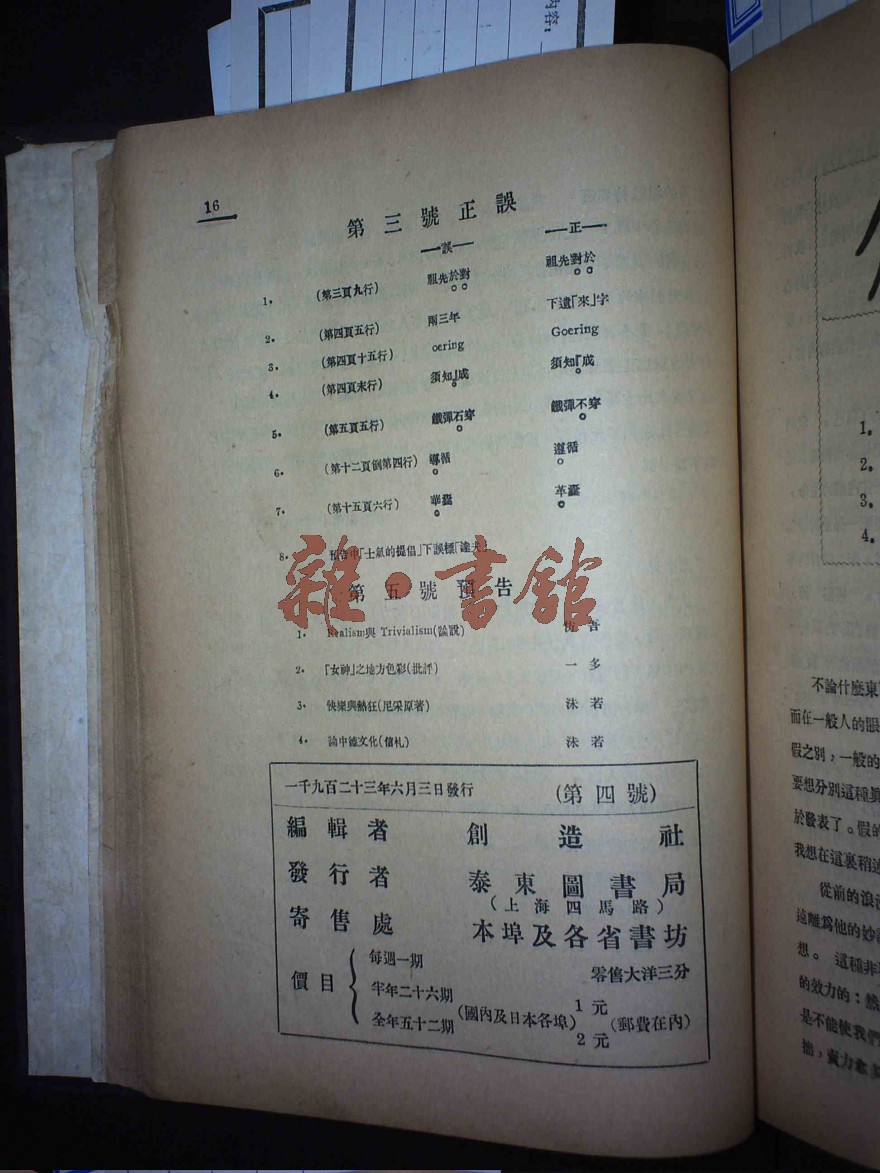 內容:
16
第三號正誤
—誤— —正—
1. (第三頁九行) 祖先於對 祖先對於
2. (第四頁五行) 兩三年 下遺「來」字
3. (第四頁十五行) oering Goering
4. (第四頁末行) 須知』成 須知『成
5. (第五頁五行) 鐵彈石穿 鐵彈不穿
6. (第十二頁倒第四行) 導循 遵循
7. (第十五頁六行) 華囊 革囊
8. 預告中「士氣的提倡」下誤標「達夫」
雜·書館
第五號預告
1. Realism與 Trivialism(論說) 吾
2. 「女神」之地方色彩(批評) 一多
3. 快樂與熱狂(尼采原著) 沫若
4. 論中德文化(信札) 沫若
一千九百二十三年六月三日發行 (第四號)
編輯者 創造社
發行者 泰東圖書局
(上海四馬路)
寄售處 本埠及各省書坊
價目 每週一期 零售大洋三分
半年二十六期 1元
(國內及日本各埠) (郵費在內)
全年五十二期 2元
1.
2.
3.
4.
不論什麼東
而在一般人的眼
假之別,一般的
要想分別這種
於發表了。假的
我想在這裏稍
從前的浪
遠離爲他的妙
想。這種非
的效力的:然
是不能使我們
拙,賣力